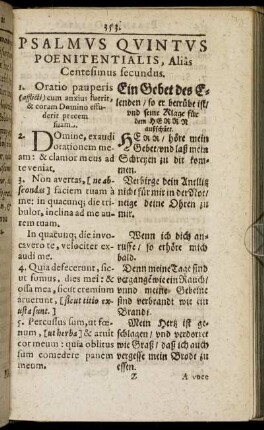 353.
PSALMVS QVINTVS
POENITENTIALIS, Aliàs
Centesimus secundus.
1. Oratio pauperis
(afflicti) cum anxius fuerit,
& coram Domino effu-
derit precem
suam.
2. Domine, exaudi
orationem me-
am: & clamor meus ad
te veniat.
3. Non avertas, [ne ab-
scondas] faciem tuam à
me: in quacunq; die tri-
bulor, inclina ad me au-
rem tuam.
In quacunq; die invo-
cavero te, velociter ex-
audi me.
4. Quia defecerunt, sic-
ut fumus, dies mei: &
ossa mea, sicut cremium
aruerunt, [sicut titio ex-
usta sunt.]
5. Percussus sum, ut fœ-
num, [ut herba] & aruit
cor meum: quia oblitus
sum comedere panem
meum.
Ein Gebet des E-
lenden / so er betrübt ist /
vnd seine Klage für
dem HERRN
außschütt.
HErr / höre mein
Gebet / vnd laß mein
Schreyen zu dir kom-
men.
Verbirge dein Antlitz
nicht für mir in der Not /
neige deine Ohren zu
mir.
Wenn ich dich an-
ruffe / so erhöre mich
bald.
Denn meine Tage sind
vergangẽ wie ein Rauch /
vnnd meine Gebeine
sind verbrandt wie ein
Brandt.
Mein Hertz ist ge-
schlagen / vnd verdorret
wie Graß / daß ich auch
vergesse mein Brodt zu
essen.
Z
A voce